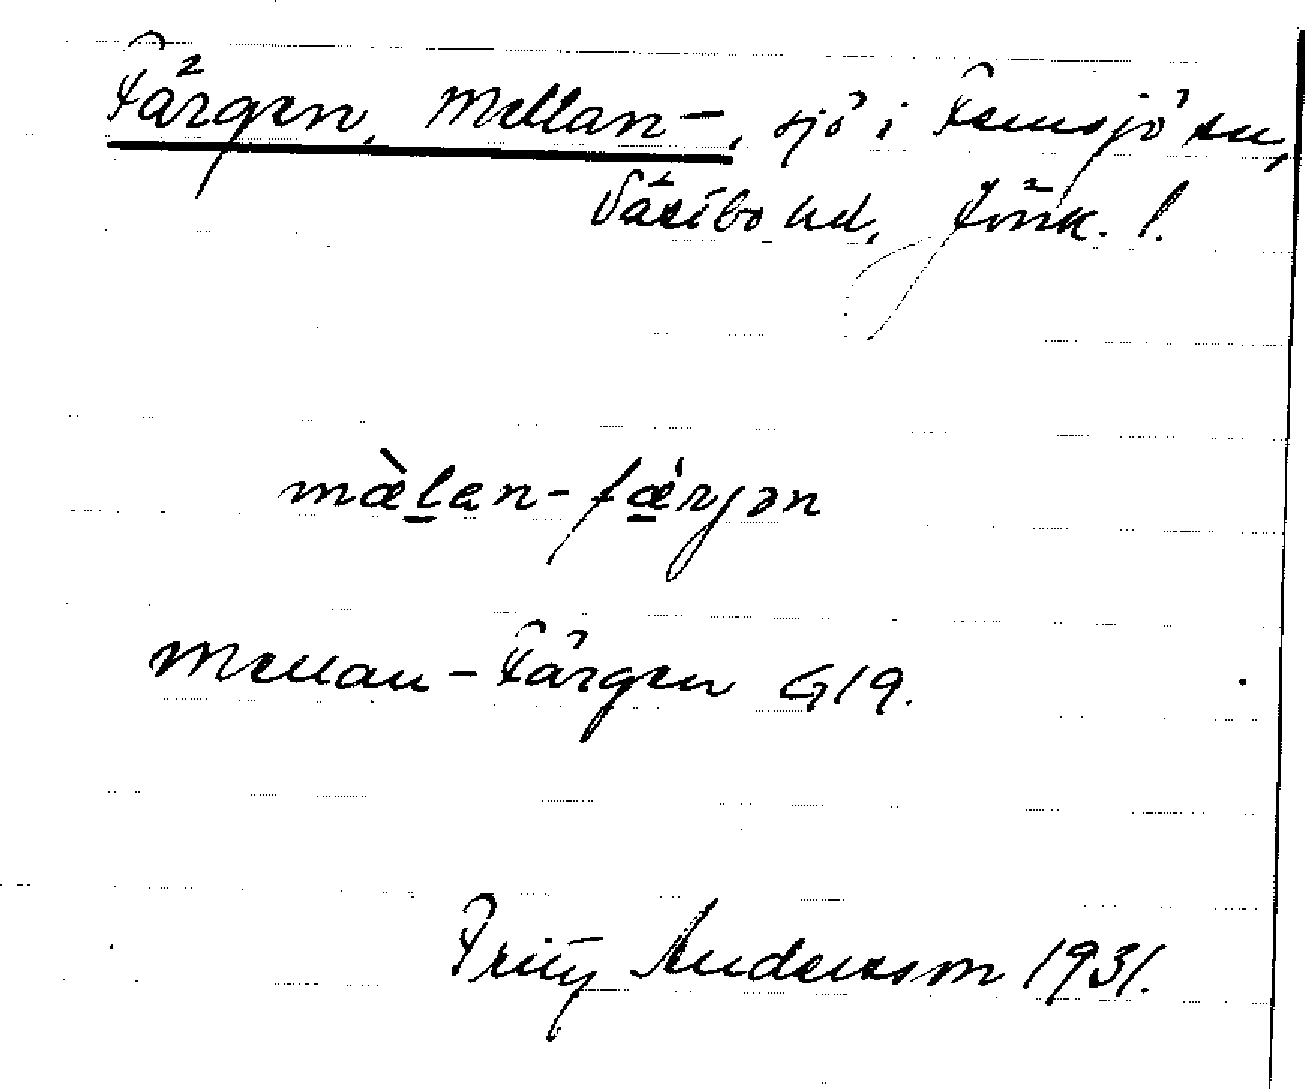 Färgen, Mellan-, sjö i Femsjö sn,
Västbo hd, Jönk. l.
mæ̀lan-fǽrjən
Mellan-Färgen G19.
Fritz Andersson 1931.